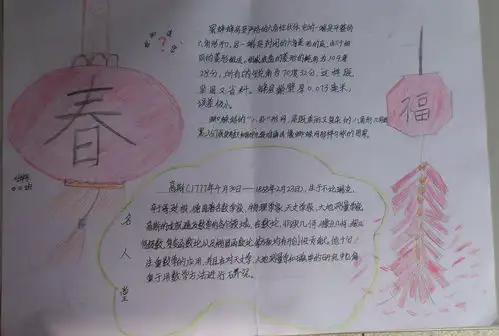 春
福
?
蜜蜂蜂房是严格的六角柱状体,它的一端是平整的
六角形开口,另一端是封闭的六角菱形的底,由三个相
同的菱形组成,组成底盘的菱形的钝角为109度
28分,所有的锐角为70度32分,这样既
坚固又省料。蜂房的巢壁厚0.073毫米,
误差极小。
名人堂
高斯(1777年4月30日——1855年2月23日),生于不伦瑞克,
卒于哥廷根,德国著名数学家、物理学家、天文学家、大地测量学家。
高斯的成就遍及数学的各个领域,在数论、非欧几何、微分几何、
级数、复变函数论以及椭圆函数论等方面均有开创性贡献。他十分
注重数学的应用,并且在对天文学、大地测量学和磁学的研究中也偏
重于用数学方法进行研究。